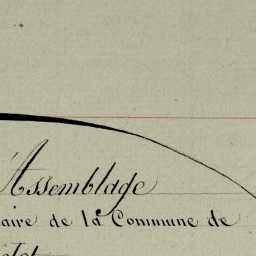 d'Assemblage
aire de la Commune de